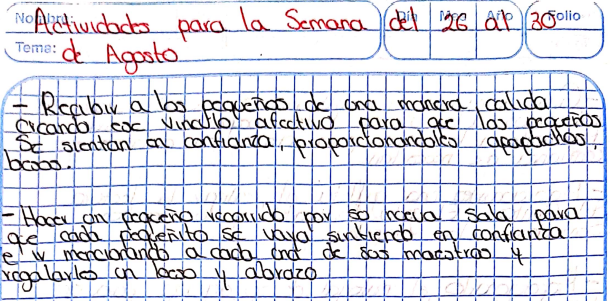 Nombre: Actividades para la Semana del 26 al 30 Folio
Día Mes Año
Tema: de Agosto
- Recibir a los pequeños de una manera calida
creando ese vinculo afectivo para que los pequeños
se sientan en confianza, proporcionandoles apapachos,
besos.
- Hacer un pequeño recorrido por su nueva sala para
que cada pequeñito se vaya sintiendo en confianza
e ir mencionando a cada una de sus maestras y
regalarles un beso y abrazo